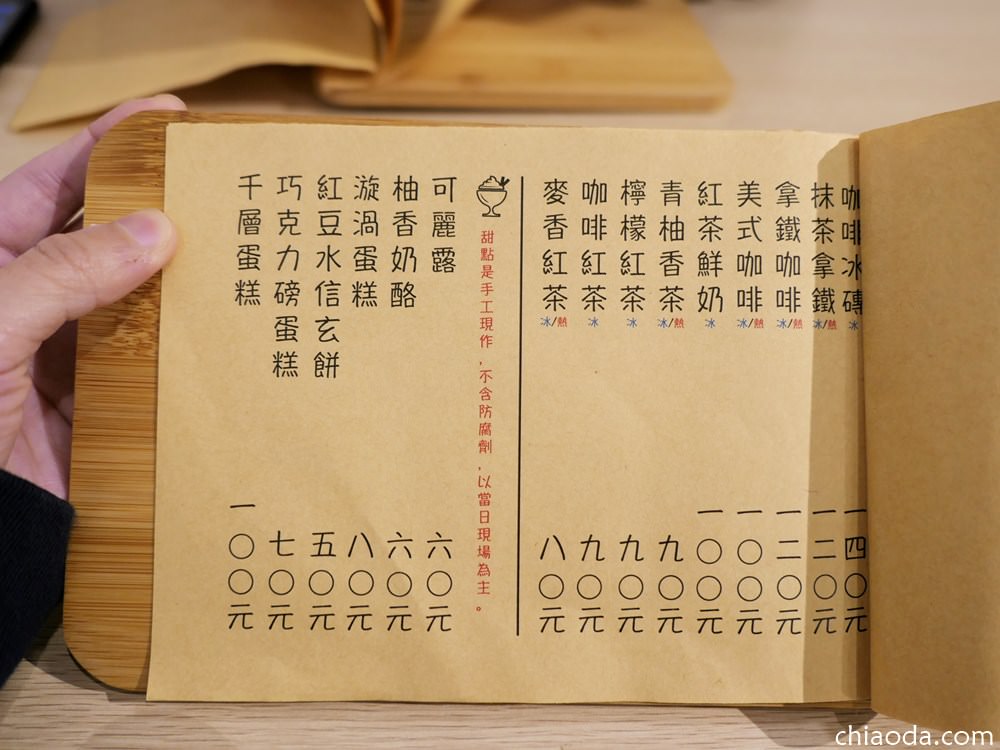 咖啡冰磚 冰 一四〇元
抹茶拿鐵 冰/熱 一二〇元
拿鐵咖啡 冰/熱 一二〇元
美式咖啡 冰/熱 一〇〇元
紅茶鮮奶 冰 一〇〇元
青柚香茶 冰/熱 九〇元
檸檬紅茶 冰 九〇元
咖啡紅茶 冰 九〇元
麥香紅茶 冰/熱 八〇元
甜點是手工現作,不含防腐劑,以當日現場為主。
可麗露 六〇元
柚香奶酪 六〇元
漩渦蛋糕 八〇元
紅豆水信玄餅 五〇元
巧克力磅蛋糕 七〇元
千層蛋糕 一〇〇元
chiaoda.com